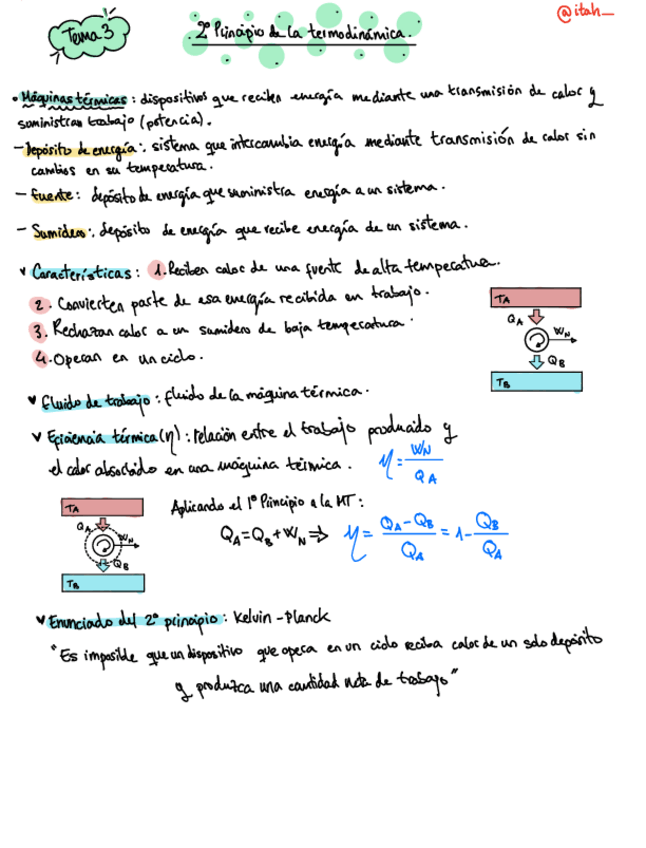 @itah_
Tema 3
2º Principio de la termodinámica.
• Máquinas térmicas: dispositivos que reciben energía mediante una transmisión de calor y
suministran trabajo (potencia).
- Depósito de energía: sistema que intercambia energía mediante transmisión de calor sin
cambios en su temperatura.
- Fuente: depósito de energía que suministra energía a un sistema.
- Sumidero: depósito de energía que recibe energía de un sistema.
Características: 1. Reciben calor de una fuente de alta temperatura.
2. Convierten parte de esa energía recibida en trabajo.
3. Rechazan calor a un sumidero de baja temperatura.
4. Operan en un ciclo.
TA
QA
WN
QB
TB
Fluido de trabajo: fluido de la máquina térmica.
Eficiencia térmica (η): relación entre el trabajo producido y
el calor absorbido en una máquina térmica. η = WN / QA
TA
QA
WN
QB
TB
Aplicando el 1º Principio a la MT:
QA = QB + WN ⇒ η = (QA - QB) / QA = 1 - QB / QA
Enunciado del 2º principio: Kelvin - Planck
"Es imposible que un dispositivo que opera en un ciclo reciba calor de un solo depósito
y produzca una cantidad neta de trabajo"